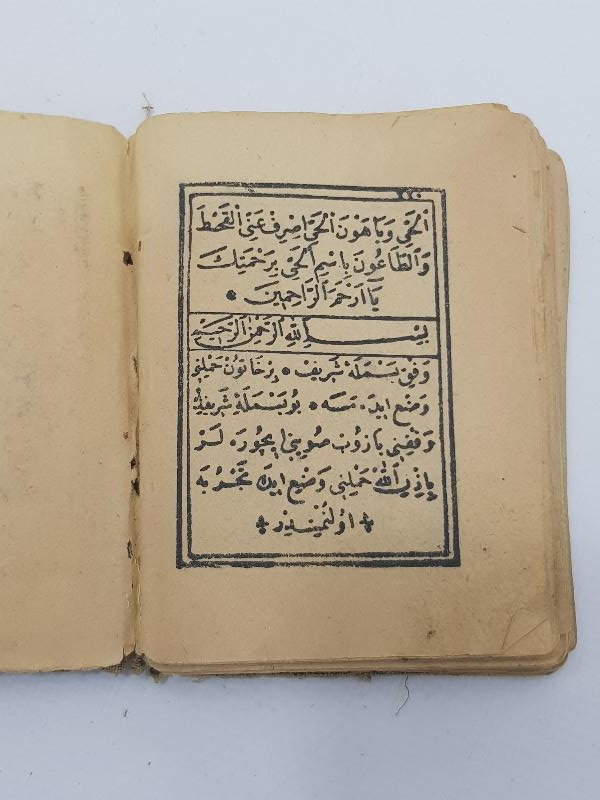 اَلْحَمِّ وَيَا هَوْنَ اَلْحَمِّ اِصْرِفْ عَنِّى اَلْقَحْطَ
وَالطَّاعُونَ بِاسْمِ الْحَىِّ بِرَحْمَتِكَ
يَا اَرْحَمَ الرَّاحِمِينَ *
بِسْــــمِ اللهِ الرَّحْمٰنِ الرَّحِيمِ
وَفْقِ بَسْمَلَهٔ شَرِيفْ * بِرْخَاتُونْ حَمْلِنِى
وَضْعِ ايدَه مَسَه * بُو بَسْمَلَهٔ شَرِيفَهْ
وَفْقِنِى يَازُوبْ صُويِنِى اِيچُورَه لَرْ
بِاِذْنِ اللهْ حَمْلِنِى وَضْعِ ايدَه تَجْرُبَه
* اوُلُنْمِشْدِرْ *